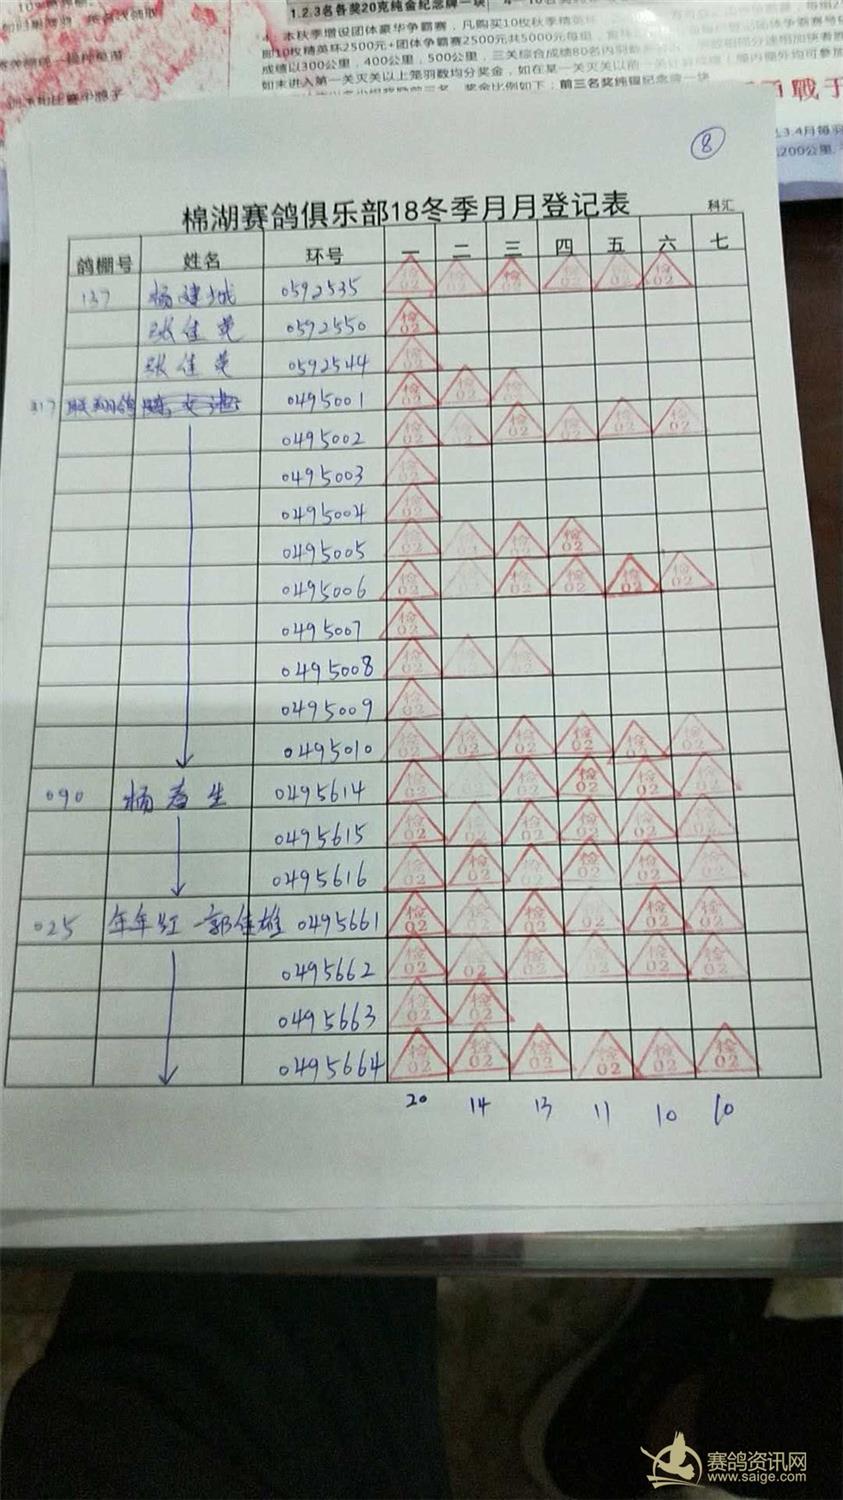 1.2.3名各奖20克纯金纪念牌一块
4、本秋季增设团体豪华争霸赛，凡购买10枚秋季精英环
即10枚精英杯2500元+团体争霸赛2500元共5000元每组
成绩以300公里，400公里，500公里，三关综合成绩80名内羽数
如未进入第一关灭关以上笼羽数均分奖金，如在某一关灭关以前一关
奖金比例如下：前三名奖纯银纪念牌一块
戰于
3.4月每羽
200公里
8
棉湖赛鸽俱乐部18冬季月月登记表 科汇
鸽棚号 姓名 环号 一 二 三 四 五 六 七
137 杨建城 0592535 检02 检02 检02 检02 检02 检02
张佳英 0592550 检02
张佳英 0592544 检02
317 联翔鸽 0495001 检02 检02 检02
0495002 检02 检02 检02 检02 检02 检02
0495003 检02
0495004 检02
0495005 检02 检02 检02 检02
0495006 检02 检02 检02 检02 检02 检02
0495007 检02
0495008 检02 检02 检02
0495009 检02
0495010 检02 检02 检02 检02 检02 检02
090 杨春生 0495614 检02 检02 检02 检02 检02 检02
0495615 检02 检02 检02 检02 检02 检02
0495616 检02 检02 检02 检02 检02 检02
025 年年红一郭佳雄 0495661 检02 检02 检02 检02 检02 检02
0495662 检02 检02 检02 检02 检02 检02
0495663 检02 检02
0495664 检02 检02 检02 检02 检02 检02
20 14 13 11 10 10
赛鸽资讯网
www.saige.com